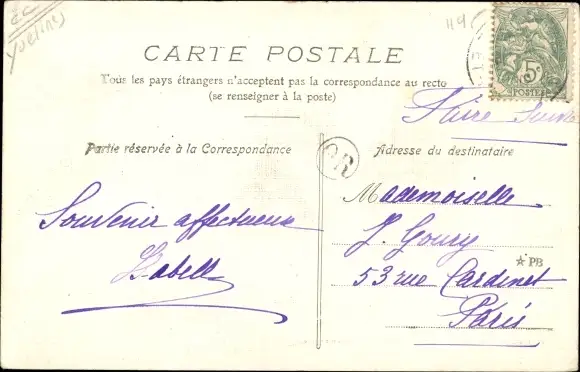 EC
Yvelines
49
5c
POSTES
CARTE POSTALE
Tous les pays étrangers n'acceptent pas la correspondance au recto
(se renseigner à la poste)
Faire Suivre
Partie réservée à la Correspondance
OR
Adresse du destinataire
Souvenir affectueux
Isabelle
Mademoiselle
J. Goury
PB
53 rue Cardinet
Paris